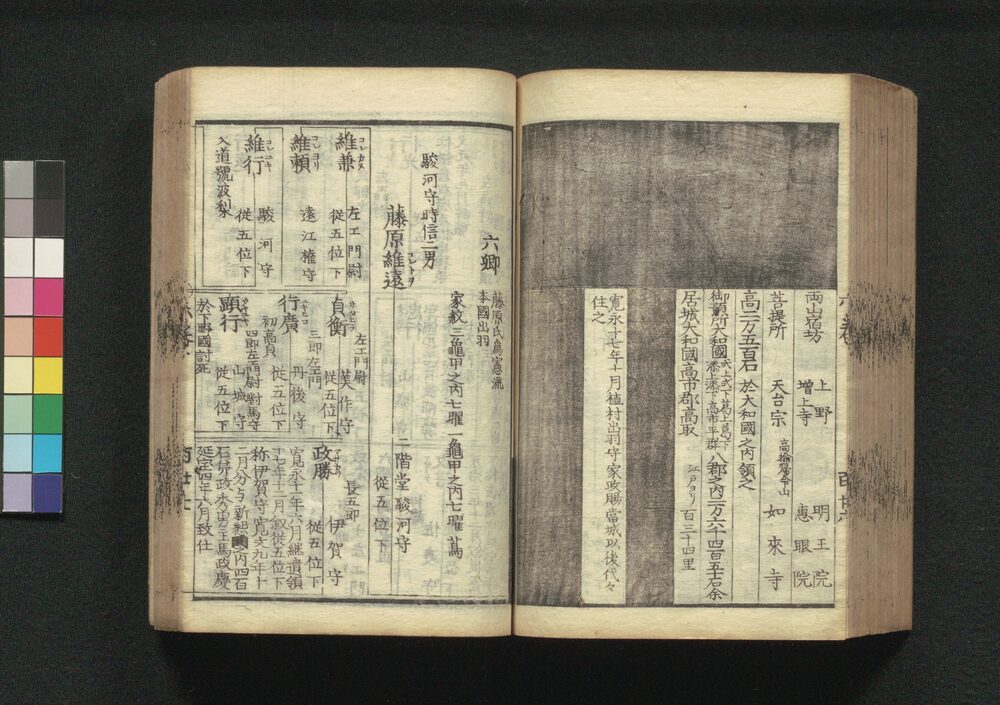 両山宿坊
上野 明王院
増上寺 恵眼院
菩提所 天台宗 如來寺
高二万五百石 於大和國之内領之
御領所大和國 八郡之内二万六千四百五十石余
居城大和國高市郡高取 江戸ヨリ 百三十四里
寛永十七年十月植村出羽守家政賜當城以後代々
住之
六郷
藤原氏為憲流
本國出羽
家紋 三龜甲之内七曜 一龜甲之内七曜
駿河守時信二男
藤原維遠
二階堂駿河守
從五位下
維兼
左エ門尉
從五位下
維頼
遠江權守
維行
駿河守
從五位下
入道號波梨
貞衡
左エ門尉
美作守
從五位下
行廣
三郎左エ門
丹後守
從五位下
初高貞
顕行
四郎左エ門尉對馬守
山城守
從五位下
於下野國討死
政勝
長五郎
伊賀守
從五位下
寛永十一年六月継遺領
十七年十二月叙從五位下
称伊賀守寛文九年十
二月分与新墾田之内四百
延宝四年六月致仕